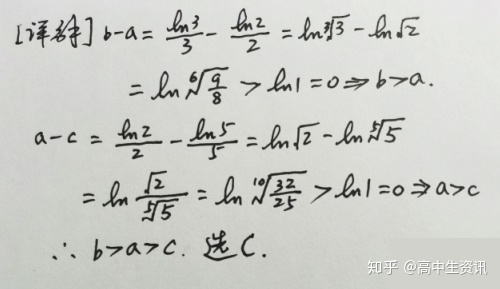 [详解] b-a = ln3/3 - ln2/2 = ln∛3 - ln√2
= ln ⁶√(9/8) > ln1 = 0 ⇒ b>a.
a-c = ln2/2 - ln5/5 = ln√2 - ln⁵√5
= ln √2/⁵√5 = ln ¹⁰√(32/25) > ln1 = 0 ⇒ a>c
∴ b>a>c. 选C.
知乎 @高中生资讯